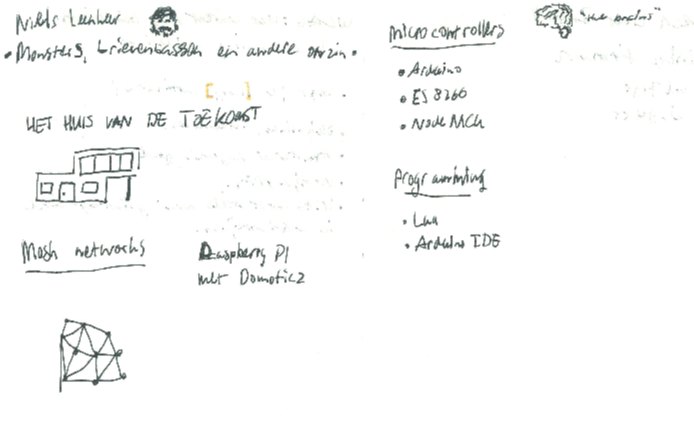 Niels Leenheer
• Monsters, brievenbussen en andere onzin •
[ ]
HET HUIS VAN DE TOEKOMST
Mesh networks
Raspberry PI
met Domoticz
microcontrollers
• Arduino
• ES 8266
• Node MCU
Programming
• Lua
• Arduino IDE
"the brains"